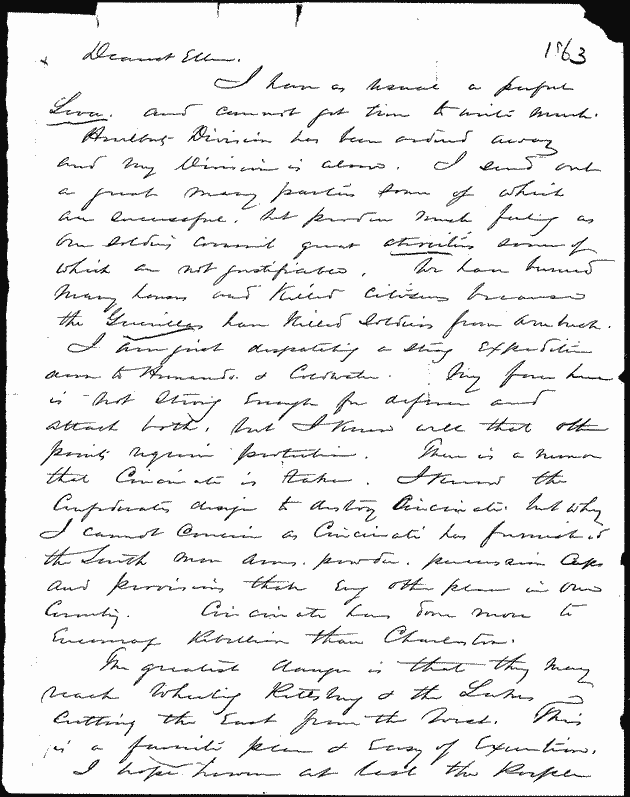 1863
Dearest Ellen.
I have as usual a painful
and cannot get time to write much.
Hurlbuts Division has been ordered away
and my Division is alone. I send out
a great many parties some of which
are successful, but produce much feeling as
our soldiers commit great atrocities some of
which are not justifiable. We have burned
many houses and Killed Citizens because
the Guerillas have Killed soldiers from ambush.
I am just despatching a strong Expedition
down to Hernando & Coldwater. My force here
is not strong Enough for defense and
attack both, but I Know well that other
points require protection. There is a rumor
that Cincinnati is taken. I Know the
Confederates design to destroy Cincinnati. but why
I cannot conceive as Cincinnati has furnished
the South more arms. powder. percussion Caps
and provisions than any other place in our
Country. Cincinnati has done more to
Encourage Rebellion than Charleston.
The greatest danger is that they may
reach Wheeling Pittsburg & the Lakes
Cutting the East from the West. This
is a favorite plan & Easy of Execution.
I hope however at last the People